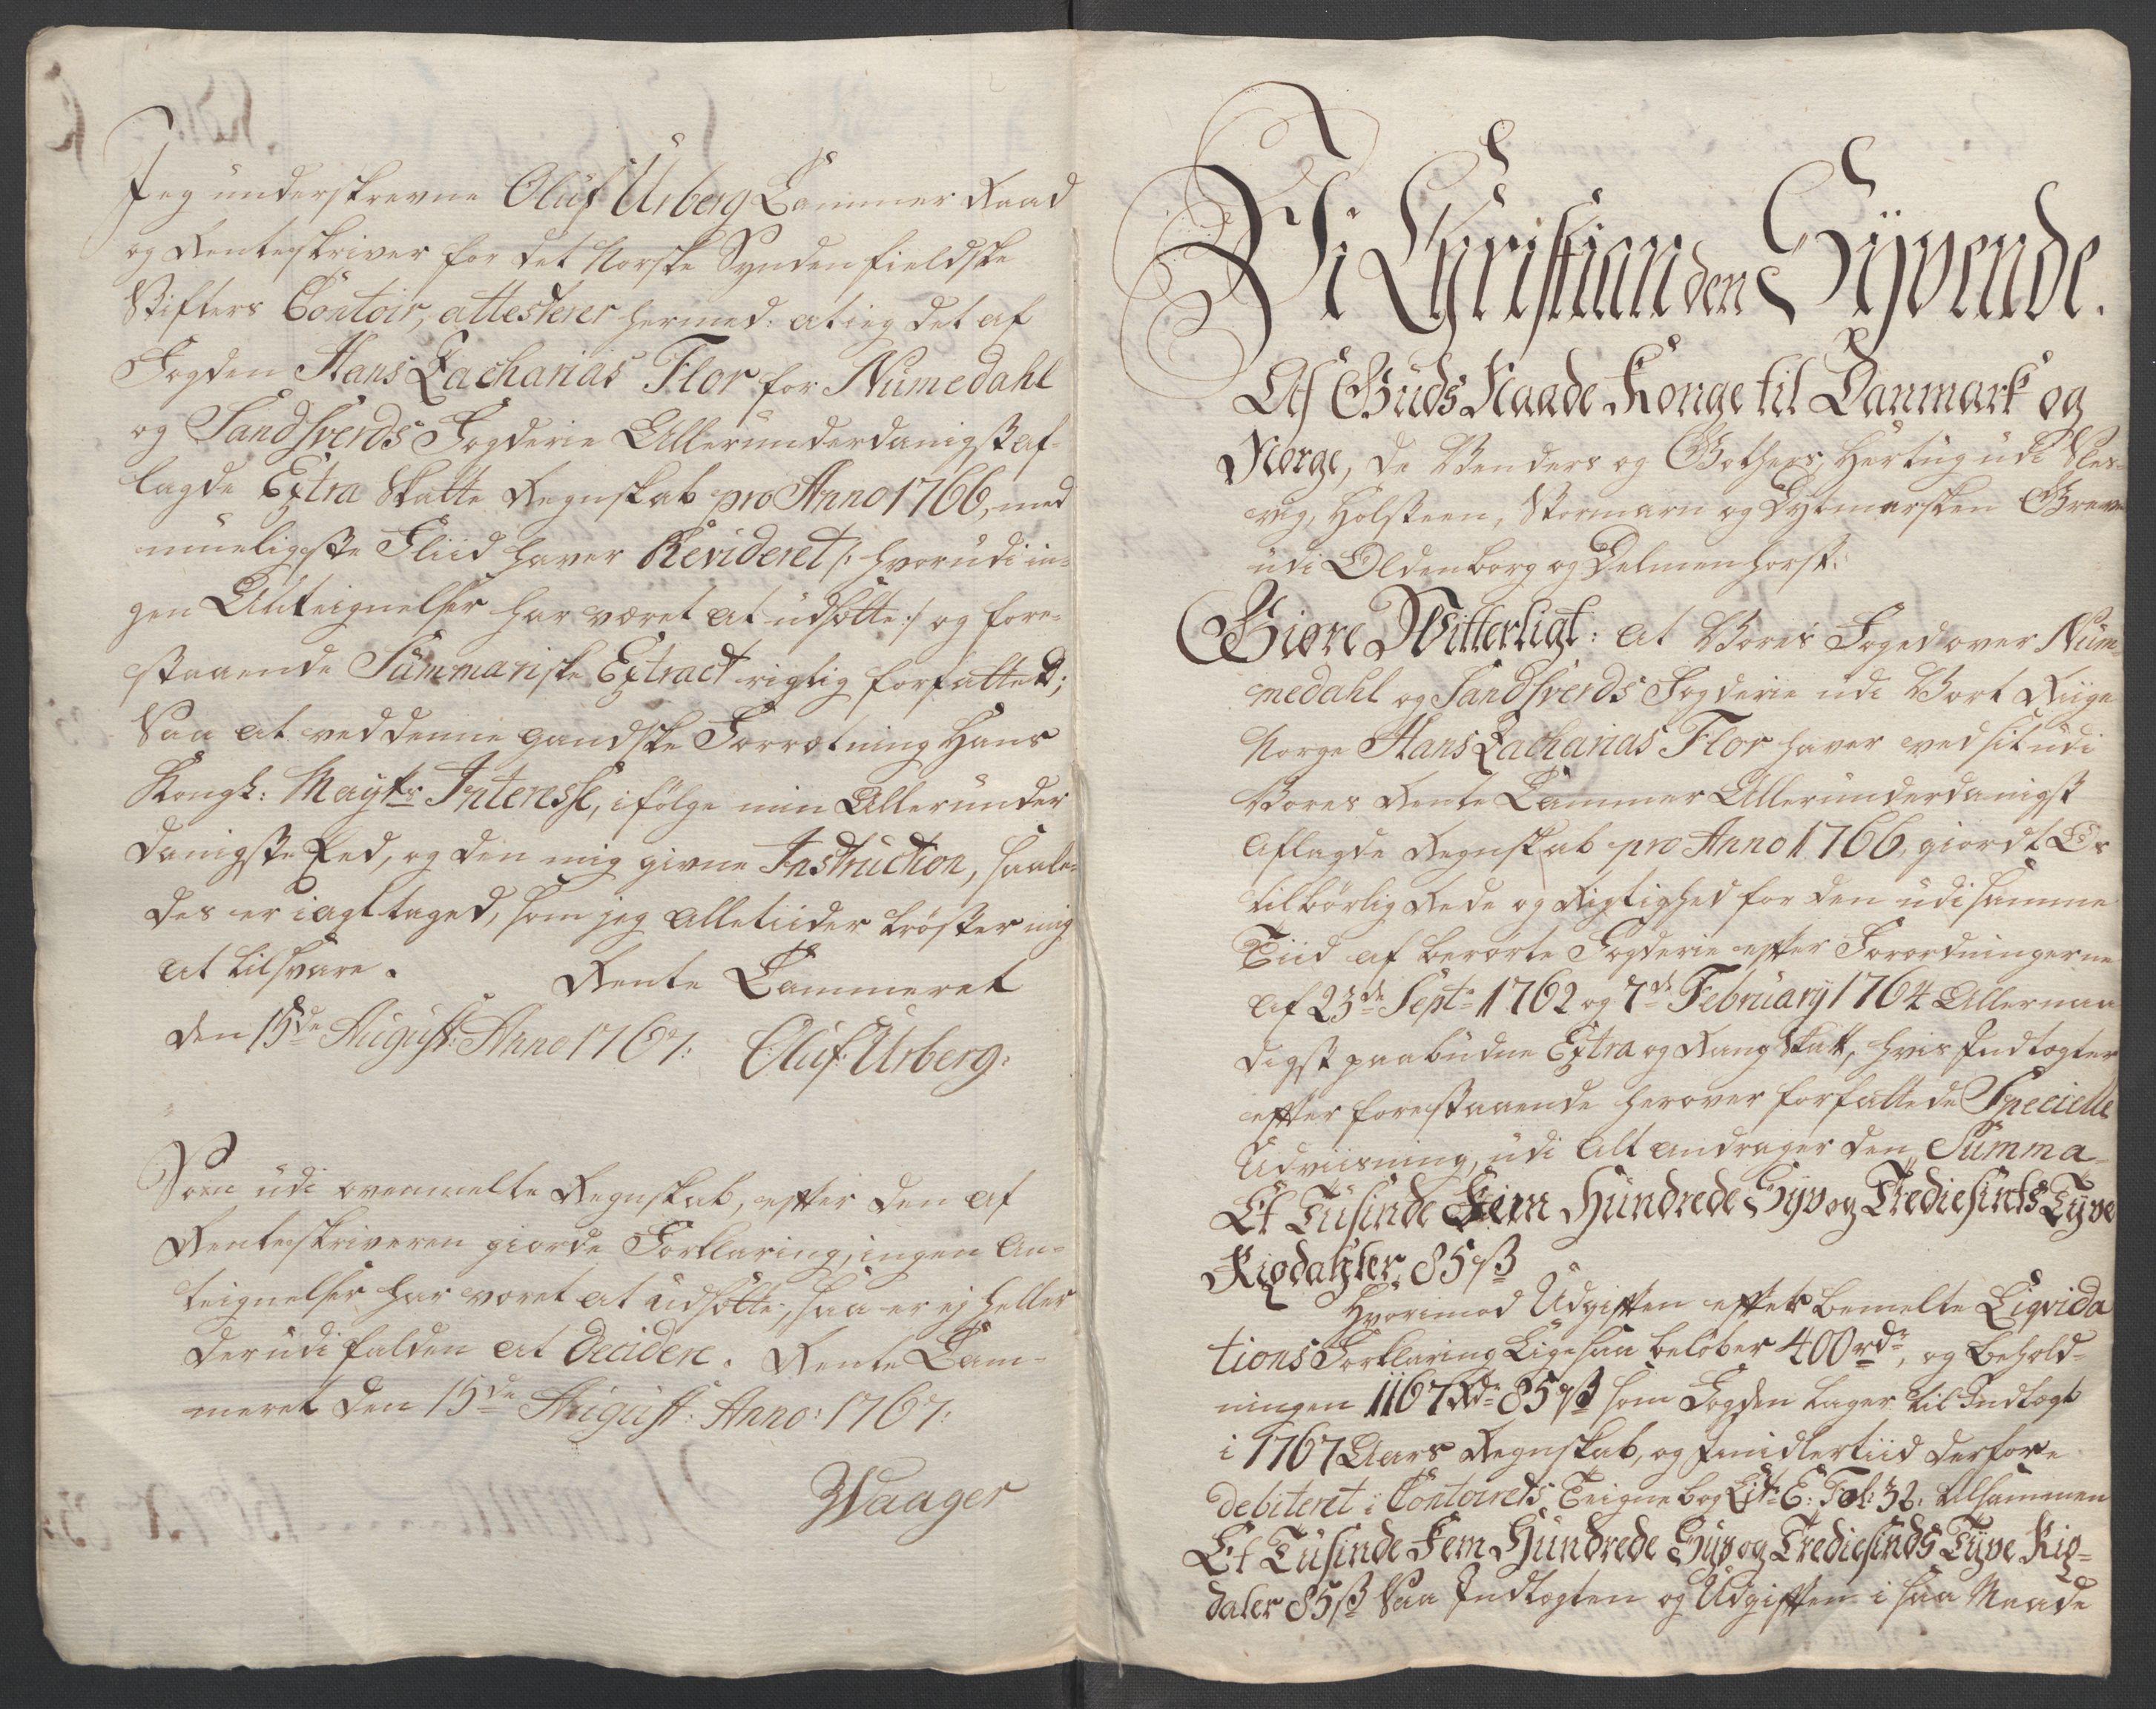 Jeg underskrevne Oluf Urberg Cammer Raad
og Renteskriver for det Norske Syndenfieldske
Stifters Contoir, attesterer hermed: at jeg det af
Fogden Hans Zacharias Flor for Numedahl
og Sandsverds Fogderie Allerunderdanigst af-
lagde Extra Skatte Regnskab pro Anno 1766, med
mueligste Fliid haver Revideret /: hvorudi in-
gen Anteignelser har været at udsætte :/ og fore-
staaende Summariske Extract rigtig forfattet;
Saa at ved denne gandske Forretning Hans
Kongl: Mayts Interesse, i følge min Allerunder
danigste Eed, og den mig givne Instruction, saale-
des er iagttaged, som jeg alletiider trøster mig
at tilsvare. Rente Cammeret
den 15de August: Anno 1767: Oluf Urberg:
Som udi ovenmelte Regnskab, efter den af
Renteskriveren giorde Forklaring, ingen An-
teignelser har været at udsætte, saa er ej heller
derudi falden at Decidere. Rente Cam-
meret den 15de August: Anno: 1767:
Waager
Vi Christian den Syvende.
Af Guds Naade Konge til Danmark og
Norge, de Venders og Gothers, Hertug udi Sles-
vig, Holsteen, Stormarn og Dytmarsken Greve
udi Oldenborg og Delmenhorst:
Giøre Witterligt: at Vores Foged over Num-
medahl og Sandsverds Fogderie udi Vort Riige
Norge Hans Zacharias Flor haver ved sit udi
Vores Rente Cammer Allerunderdanigst
aflagde Regnskab pro Anno 1766, giordt Os
tilbørlig Rede og Rigtighed for den udi samme
Tiid af berørte Fogderie efter Forordningerne
af 23de Septr 1762 og 7de February 1764 Allernaa
digst paabudne Extra og Rang Skatt, hvis Indtægter
efter forestaaende herover forfattede Specielle
Udviisning, udi Alt andrager den Summa
Et Tusinde Fem Hundrede Syv og Trediesinds Tyve
Rigsdahler 85 ß
Hvorimod Udgiften efter bemelte Liqvida
tions Forklaring Ligesaa beløber 400 rdr, og behold-
ningen 1167 Rdr 85 ß som Fogden tager til Indtægt
i 1767 Aars Regnskab, og Imidlertiid derfore
debiteret i Contoirets Teignebog Litr E: Fol: 32. tilsammen
Et Tusinde Fem Hundrede Syv og Trediesinds Tyve Rig-
daler 85 ß Saa Indtægten og Udgiften i saa Maade